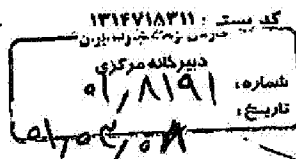 کد پستی: ۱۳۱۴۷۱۸۳۱۱
دبیرخانه مرکزی
شماره: ۰۱/۸۱۹۱
تاریخ: ۰۱,۰۴,۰۸